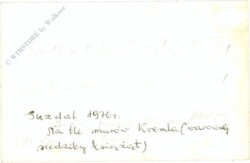 © WINSTORE by Walkow
Suzdal 1976r.
Na tle murów Kremla (
siedziby książąt)